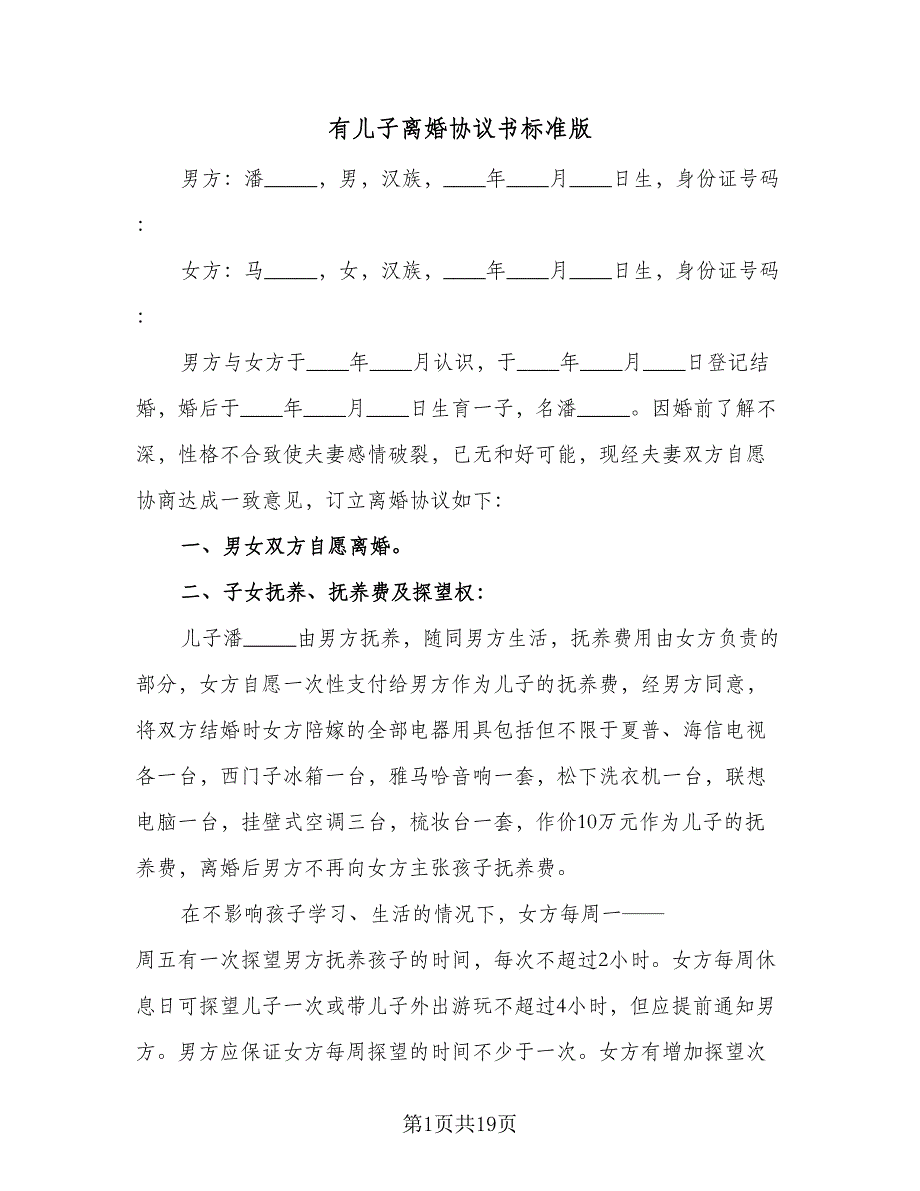 有儿子离婚协议书标准版
男方：潘_____，男，汉族，____年____月____日生，身份证号码
：
女方：马_____，女，汉族，____年____月____日生，身份证号码
：
男方与女方于____年____月认识，于____年____月____日登记结
婚，婚后于____年____月____日生育一子，名潘_____。因婚前了解不
深，性格不合致使夫妻感情破裂，已无和好可能，现经夫妻双方自愿
协商达成一致意见，订立离婚协议如下：
一、男女双方自愿离婚。
二、子女抚养、抚养费及探望权：
儿子潘_____由男方抚养，随同男方生活，抚养费用由女方负责的
部分，女方自愿一次性支付给男方作为儿子的抚养费，经男方同意，
将双方结婚时女方陪嫁的全部电器用具包括但不限于夏普、海信电视
各一台，西门子冰箱一台，雅马哈音响一套，松下洗衣机一台，联想
电脑一台，挂壁式空调三台，梳妆台一套，作价10万元作为儿子的抚
养费，离婚后男方不再向女方主张孩子抚养费。
在不影响孩子学习、生活的情况下，女方每周一——
周五有一次探望男方抚养孩子的时间，每次不超过2小时。女方每周休
息日可探望儿子一次或带儿子外出游玩不超过4小时，但应提前通知男
方。男方应保证女方每周探望的时间不少于一次。女方有增加探望次
第1页共19页